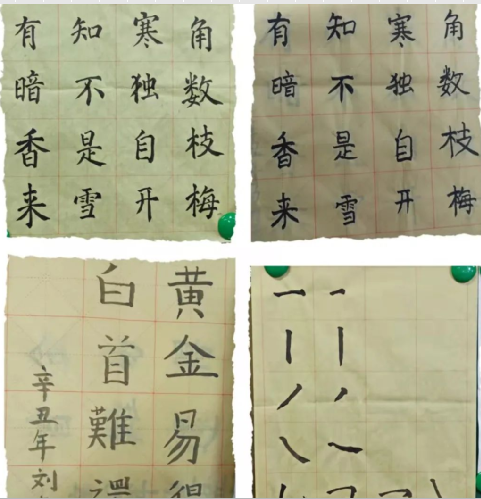 角数枝梅
寒独自开
知不是雪
有暗香来
角数枝梅
寒独自开
知不是雪
有暗香来
黄金易得
白首難還
辛丑年刘